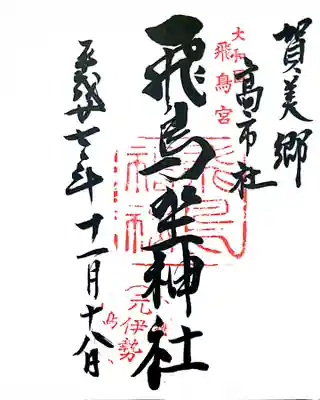 賀美郷
高市社
大和
飛鳥宮
飛鳥坐神社
元伊勢
平成廿七年十一月十八日